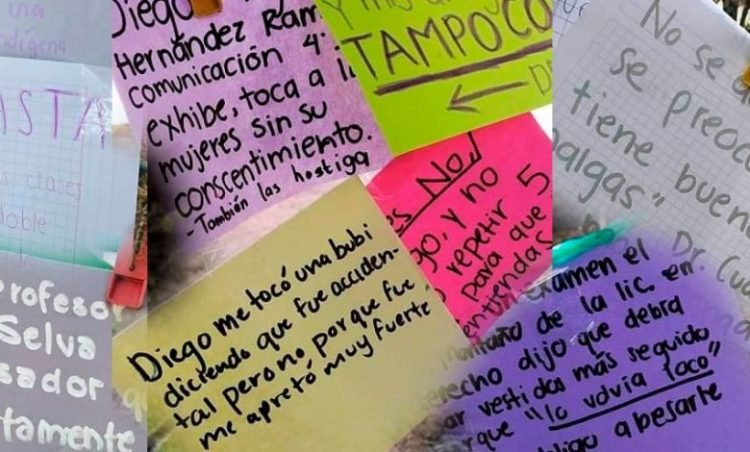 una
indígena
ASTA
clases
profesor
Selva
sador
tamente
Diego
Hernández Ram
comunicación 4
exhibe, toca a l
mujeres sin su
conscentimiento.
- También las hostiga
TAMPOCO
←
No!
go, y no
repetir 5
para que
entiendas
Diego me tocó una bubi
diciendo que fue acciden-
tal pero no porque fue
me apretó muy fuerte
No se
se preoc
tiene buen
nalgas"
Dr. Cu
examen el
Montaño de la lic. en
erecho dijo que debra
ar vestidos más seguido
rque "lo volvia loco"
abesarte